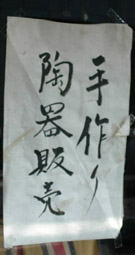 手作り
陶器販売